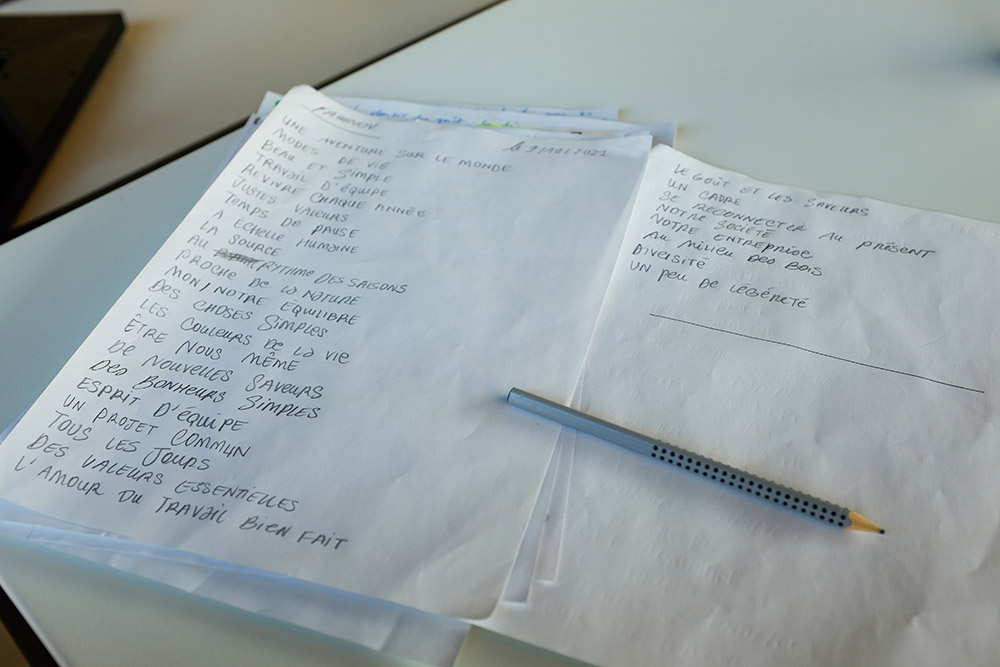 le 9/AOÛ/2021
UNE AVENTURE SUR LE MONDE
MODES DE VIE
BEAU ET SIMPLE
TRAVAIL D'ÉQUIPE
REVIVRE CHAQUE ANNÉE
JUSTES VALEURS
TEMPS DE PAUSE
A ECHELLE HUMAINE
LA SOURCE
AU RYTHME DES SAISONS
PROCHE DE LA NATURE
MON/NOTRE ÉQUILIBRE
DES CHOSES SIMPLES
LES COULEURS DE LA VIE
ÊTRE NOUS MÊME
DE NOUVELLES SAVEURS
DES BONHEURS SIMPLES
ESPRIT D'ÉQUIPE
UN PROJET COMMUN
TOUS LES JOURS
DES VALEURS ESSENTIELLES
L'AMOUR DU TRAVAIL BIEN FAIT
LE GOÛT ET LES SAVEURS
UN CADRE
SE RECONNECTER AU PRÉSENT
NOTRE SOCIÉTÉ
NOTRE ENTREPRISE
AU MILIEU DES BOIS
DIVERSITÉ
UN PEU DE LÉGÉRETÉ